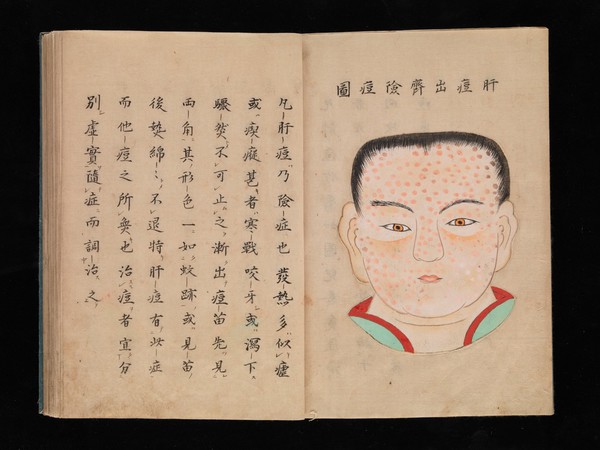 肝痘出齊險痘圖
凡肝痘乃險症也發熱多似瘧
或甚者寒戰咬牙或瀉下
驟然不可止之漸出痘苗先見
兩角其形色一如蚊跡或見苗
後熱綿々不退特肝痘有此症
而他痘之所無也治痘者宜分
別虛實隨症而調治之